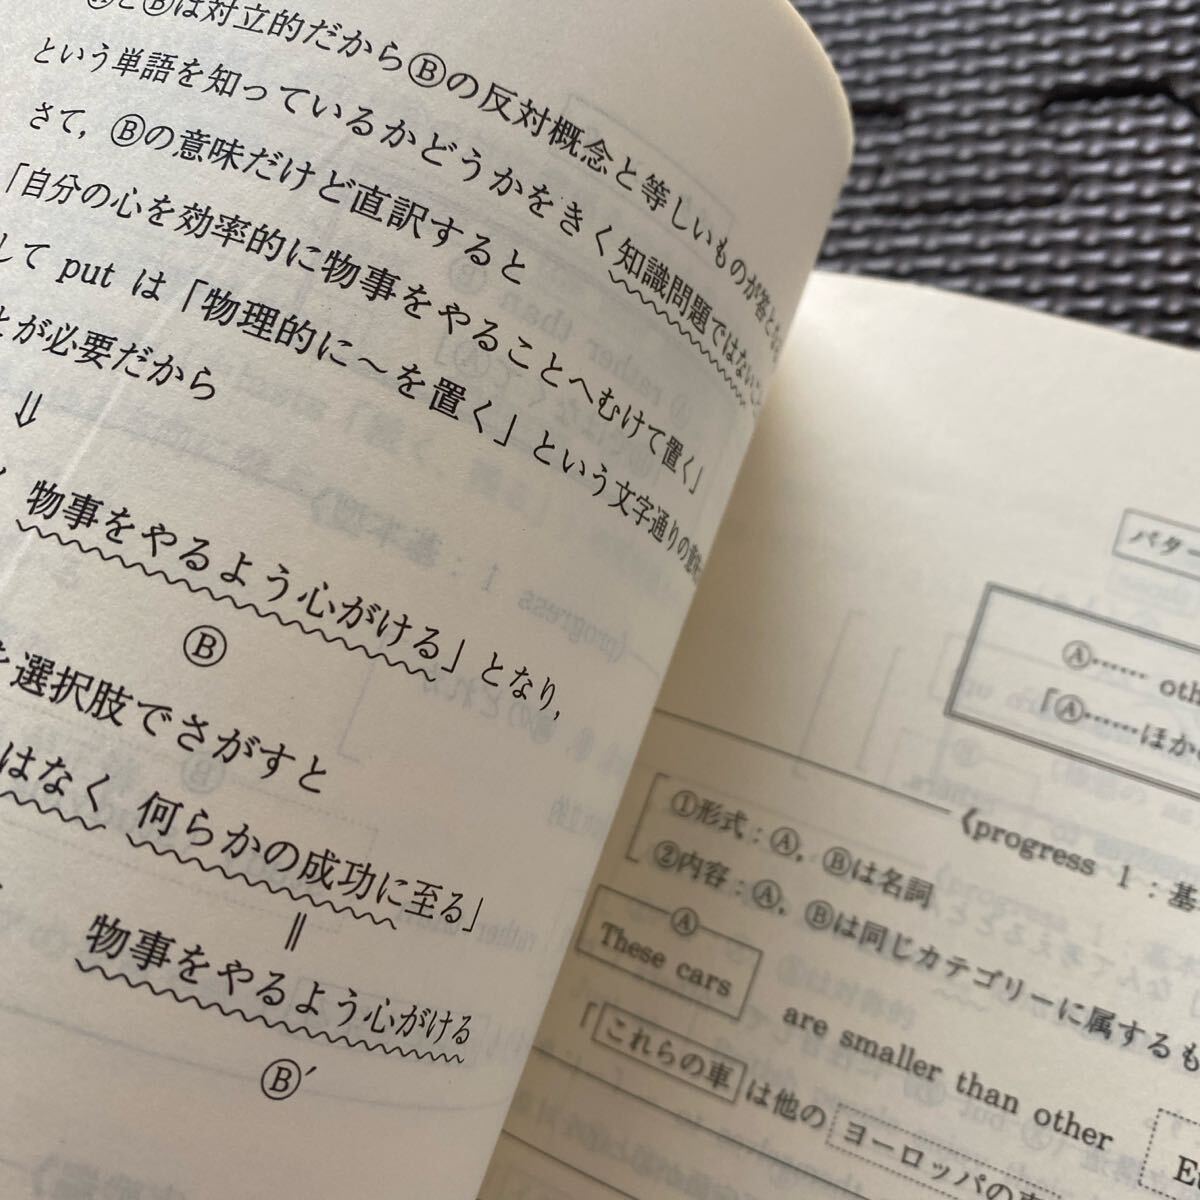 ⒶとⒷは対立的だからⒷの反対概念と等しいものが答とな
という単語を知っているかどうかをきく知識問題ではないこ
さて，Ⓑの意味だけど直訳すると
「自分の心を効率的に物事をやることへむけて置く」
して put は「物理的に～を置く」という文字通りの意
とが必要だから
⇓
物事をやるよう心がける」となり，
Ⓑ
を選択肢でさがすと
はなく 何らかの成功に至る」
||
物事をやるよう心がける
Ⓑ′
パター
Ⓐ…… oth
「Ⓐ……ほか
《progress 1：基
①形式：Ⓐ，Ⓑは名詞
②内容：Ⓐ，Ⓑは同じカテゴリーに属するも
Ⓐ
These cars are smaller than other E
「これらの車は他のヨーロッパの車